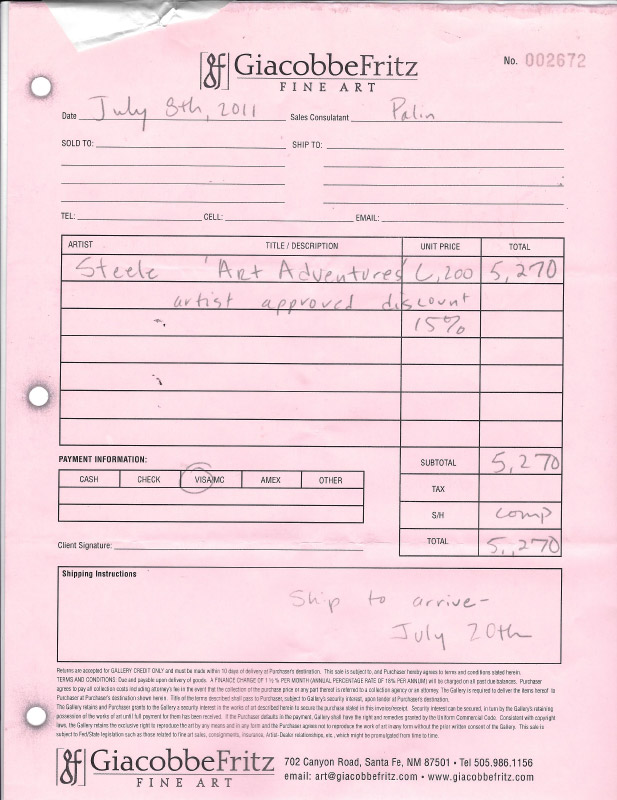 GiacobbeFritz
FINE ART
No. 002672
Date July 8th, 2011 Sales Consulatant Palin
SOLD TO: SHIP TO:
TEL: CELL: EMAIL:
ARTIST TITLE / DESCRIPTION UNIT PRICE TOTAL
Steele 'Art Adventures' 6,200 5,270
artist approved discount
15%
PAYMENT INFORMATION:
CASH CHECK VISA/MC AMEX OTHER
SUBTOTAL 5,270
TAX
S/H comp
TOTAL 5,270
Client Signature:
Shipping Instructions
Ship to arrive-
July 20th
Returns are accepted for GALLERY CREDIT ONLY and must be made within 10 days of delivery at Purchaser's destination. This sale is subject to, and Purchaser hereby agrees to terms and conditions stated herein.
TERMS AND CONDITIONS: Due and payable upon delivery of goods. A FINANCE CHARGE OF 1 ½ % PER MONTH (ANNUAL PERCENTAGE RATE OF 18% PER ANNUM) will be charged on all past due balances. Purchaser
agrees to pay all collection costs including attorney's fee in the event that the collection of the purchase price or any part thereof is referred to a collection agency or an attorney. The Gallery is required to deliver the items hereof to
Purchaser at Purchaser's destination shown herein. Title of the terms described shall pass to Purchaser, subject to Gallery's security interest, upon tender at Purchaser's destination.
The Gallery retains and Purchaser grants to the Gallery a security interest in the works of art described herein to secure the purchase stated in this invoice/receipt. Security interest can be secured, in turn by the Gallery's retaining
possession of the works of art until full payment for them has been received. If the Purchaser defaults in the payment, Gallery shall have the right and remedies granted by the Uniform Commercial Code. Consistent with copyright
laws, the Gallery retains the exclusive right to reproduce the art by any means and in any form and the Purchaser agrees not to reproduce the work of art in any form without the prior written consent of the Gallery. This sale is
subject to Fed/State legislation such as those related to fine art sales, consignments, insurance, Artist-Dealer relationships, etc., which might be promulgated from time to time.
GiacobbeFritz
FINE ART
702 Canyon Road, Santa Fe, NM 87501 • Tel 505.986.1156
email: art@giacobbefritz.com • www.giacobbefritz.com